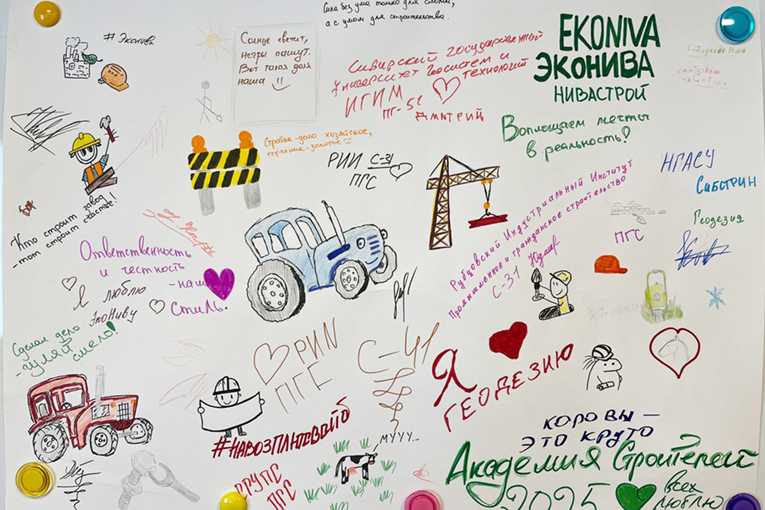 Сила без ума только для сноса,
а с умом для строительства.
# Эконива
Солнце светит,
негры пашут.
Вот такая доля
наша
Сибирский государственный
университет геосистем и
технологий
ИГИМ
ПГ-51
Дмитрий
EKONIVA
ЭКОНИВА
НИВАСТРОЙ
Воплощаем мечты
в реальность!
Стройка-дело хозяйское,
РИИ С-31
ПГС
НГАСУ
Сибстрин
Геодезия
Кто строит завод
-тот строит счастье!
Ответственность
и честность
- наш
стиль.
Я люблю
ЭкоНиву
Рубцовский Индустриальный Институт
Промышленное и гражданское строительство
С-31
ПГС
Сделал дело
- гуляй смело!
РИИ
ПГС
С-41
Я
ГЕОДЕЗИЮ
#НАВОЗПЛЮТВАЙБ
МУУУ..
КОРОВЫ –
ЭТО КРУТО
Академия Строителей
2025
всех
люблю
ПГС